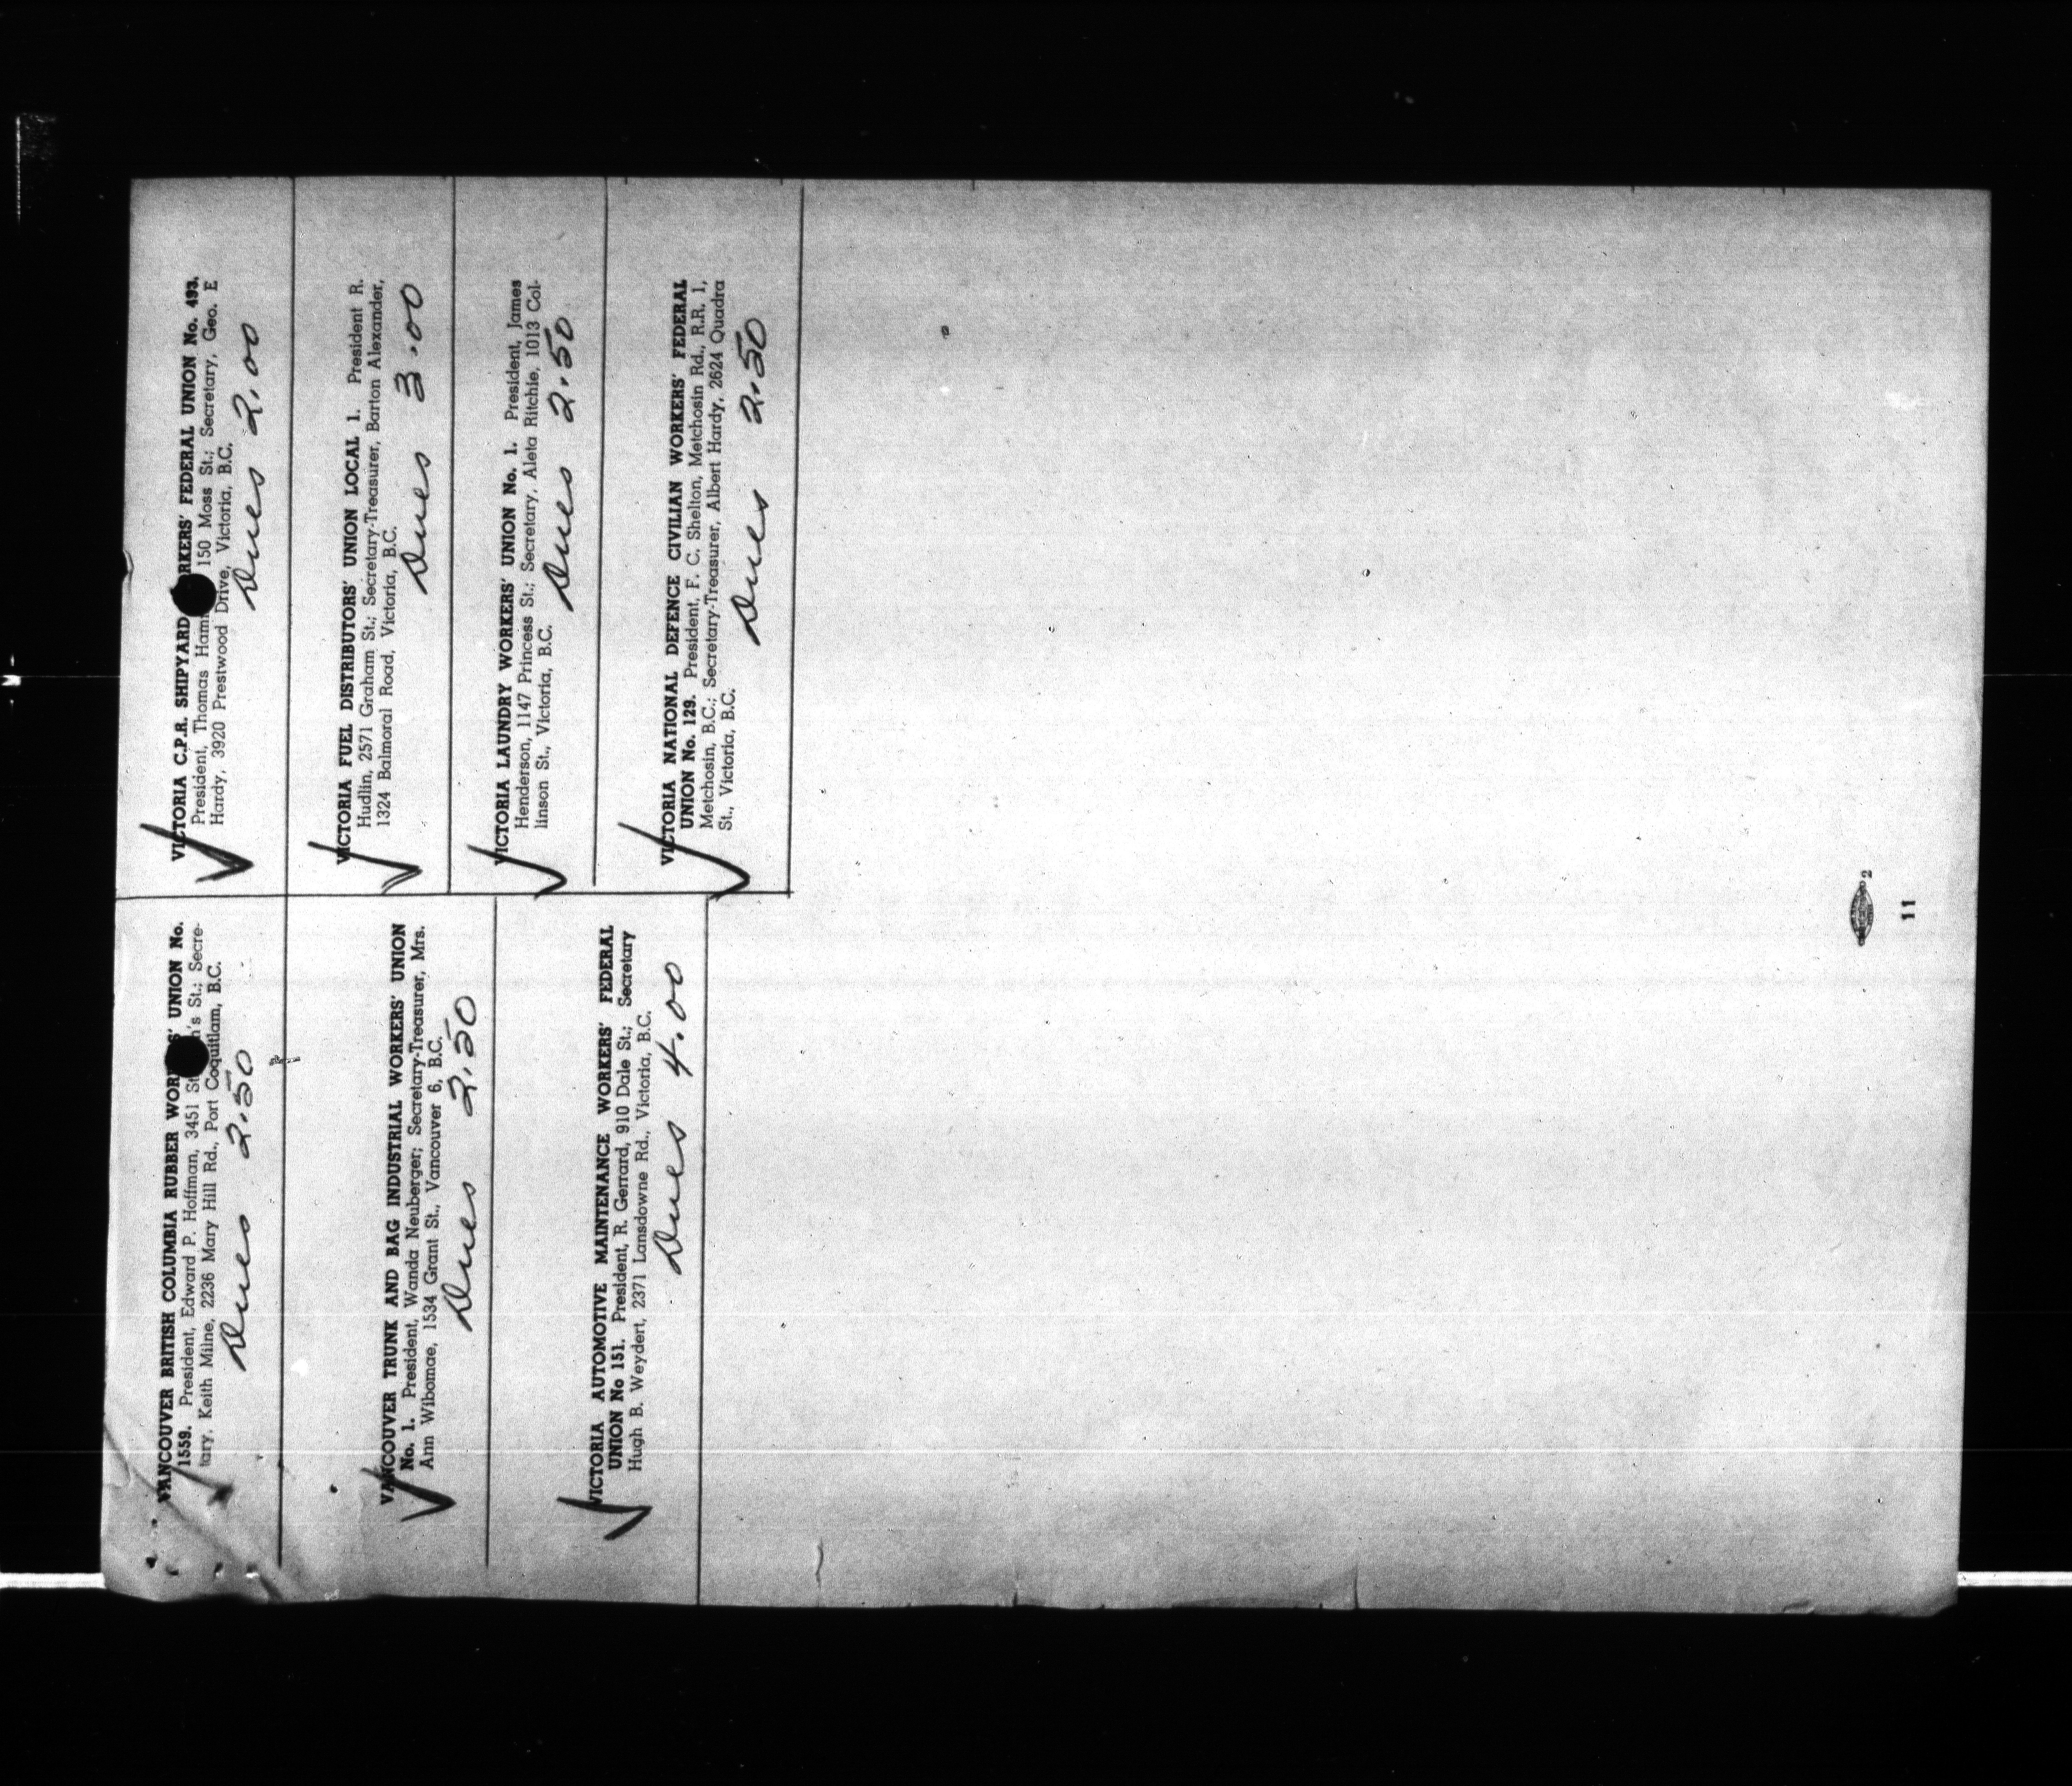 VANCOUVER BRITISH COLUMBIA RUBBER WORKERS' UNION No.
1559. President, Edward P. Hoffman, 3451 St 's St.; Secre-
tary, Keith Milne, 2236 Mary Hill Rd., Port Coquitlam, B.C.
Dues 2.50
VANCOUVER TRUNK AND BAG INDUSTRIAL WORKERS' UNION
No. 1. President, Wanda Neuberger; Secretary-Treasurer, Mrs.
Ann Wibomae, 1534 Grant St., Vancouver 6, B.C.
Dues 2.50
VICTORIA AUTOMOTIVE MAINTENANCE WORKERS' FEDERAL
UNION No 151. President, R. Gerrard, 910 Dale St.; Secretary
Hugh B. Weydert, 2371 Lansdowne Rd., Victoria, B.C.
Dues 4.00
VICTORIA C.P.R. SHIPYARD RKERS' FEDERAL UNION No. 493.
President, Thomas Ham 150 Moss St.; Secretary, Geo. E
Hardy, 3920 Prestwood Drive, Victoria, B.C.
Dues 2.00
VICTORIA FUEL DISTRIBUTORS' UNION LOCAL 1. President R.
Hudlin, 2571 Graham St.; Secretary-Treasurer, Barton Alexander,
1324 Balmoral Road, Victoria, B.C.
Dues 3.00
VICTORIA LAUNDRY WORKERS' UNION No. 1. President, James
Henderson, 1147 Princess St.; Secretary, Aleta Ritchie, 1013 Col-
linson St., Victoria, B.C.
Dues 2.50
VICTORIA NATIONAL DEFENCE CIVILIAN WORKERS' FEDERAL
UNION No. 129. President, F. C. Shelton, Metchosin Rd., R.R. 1,
Metchosin, B.C.; Secretary-Treasurer, Albert Hardy, 2624 Quadra
St., Victoria, B.C.
Dues 2.50
2
11